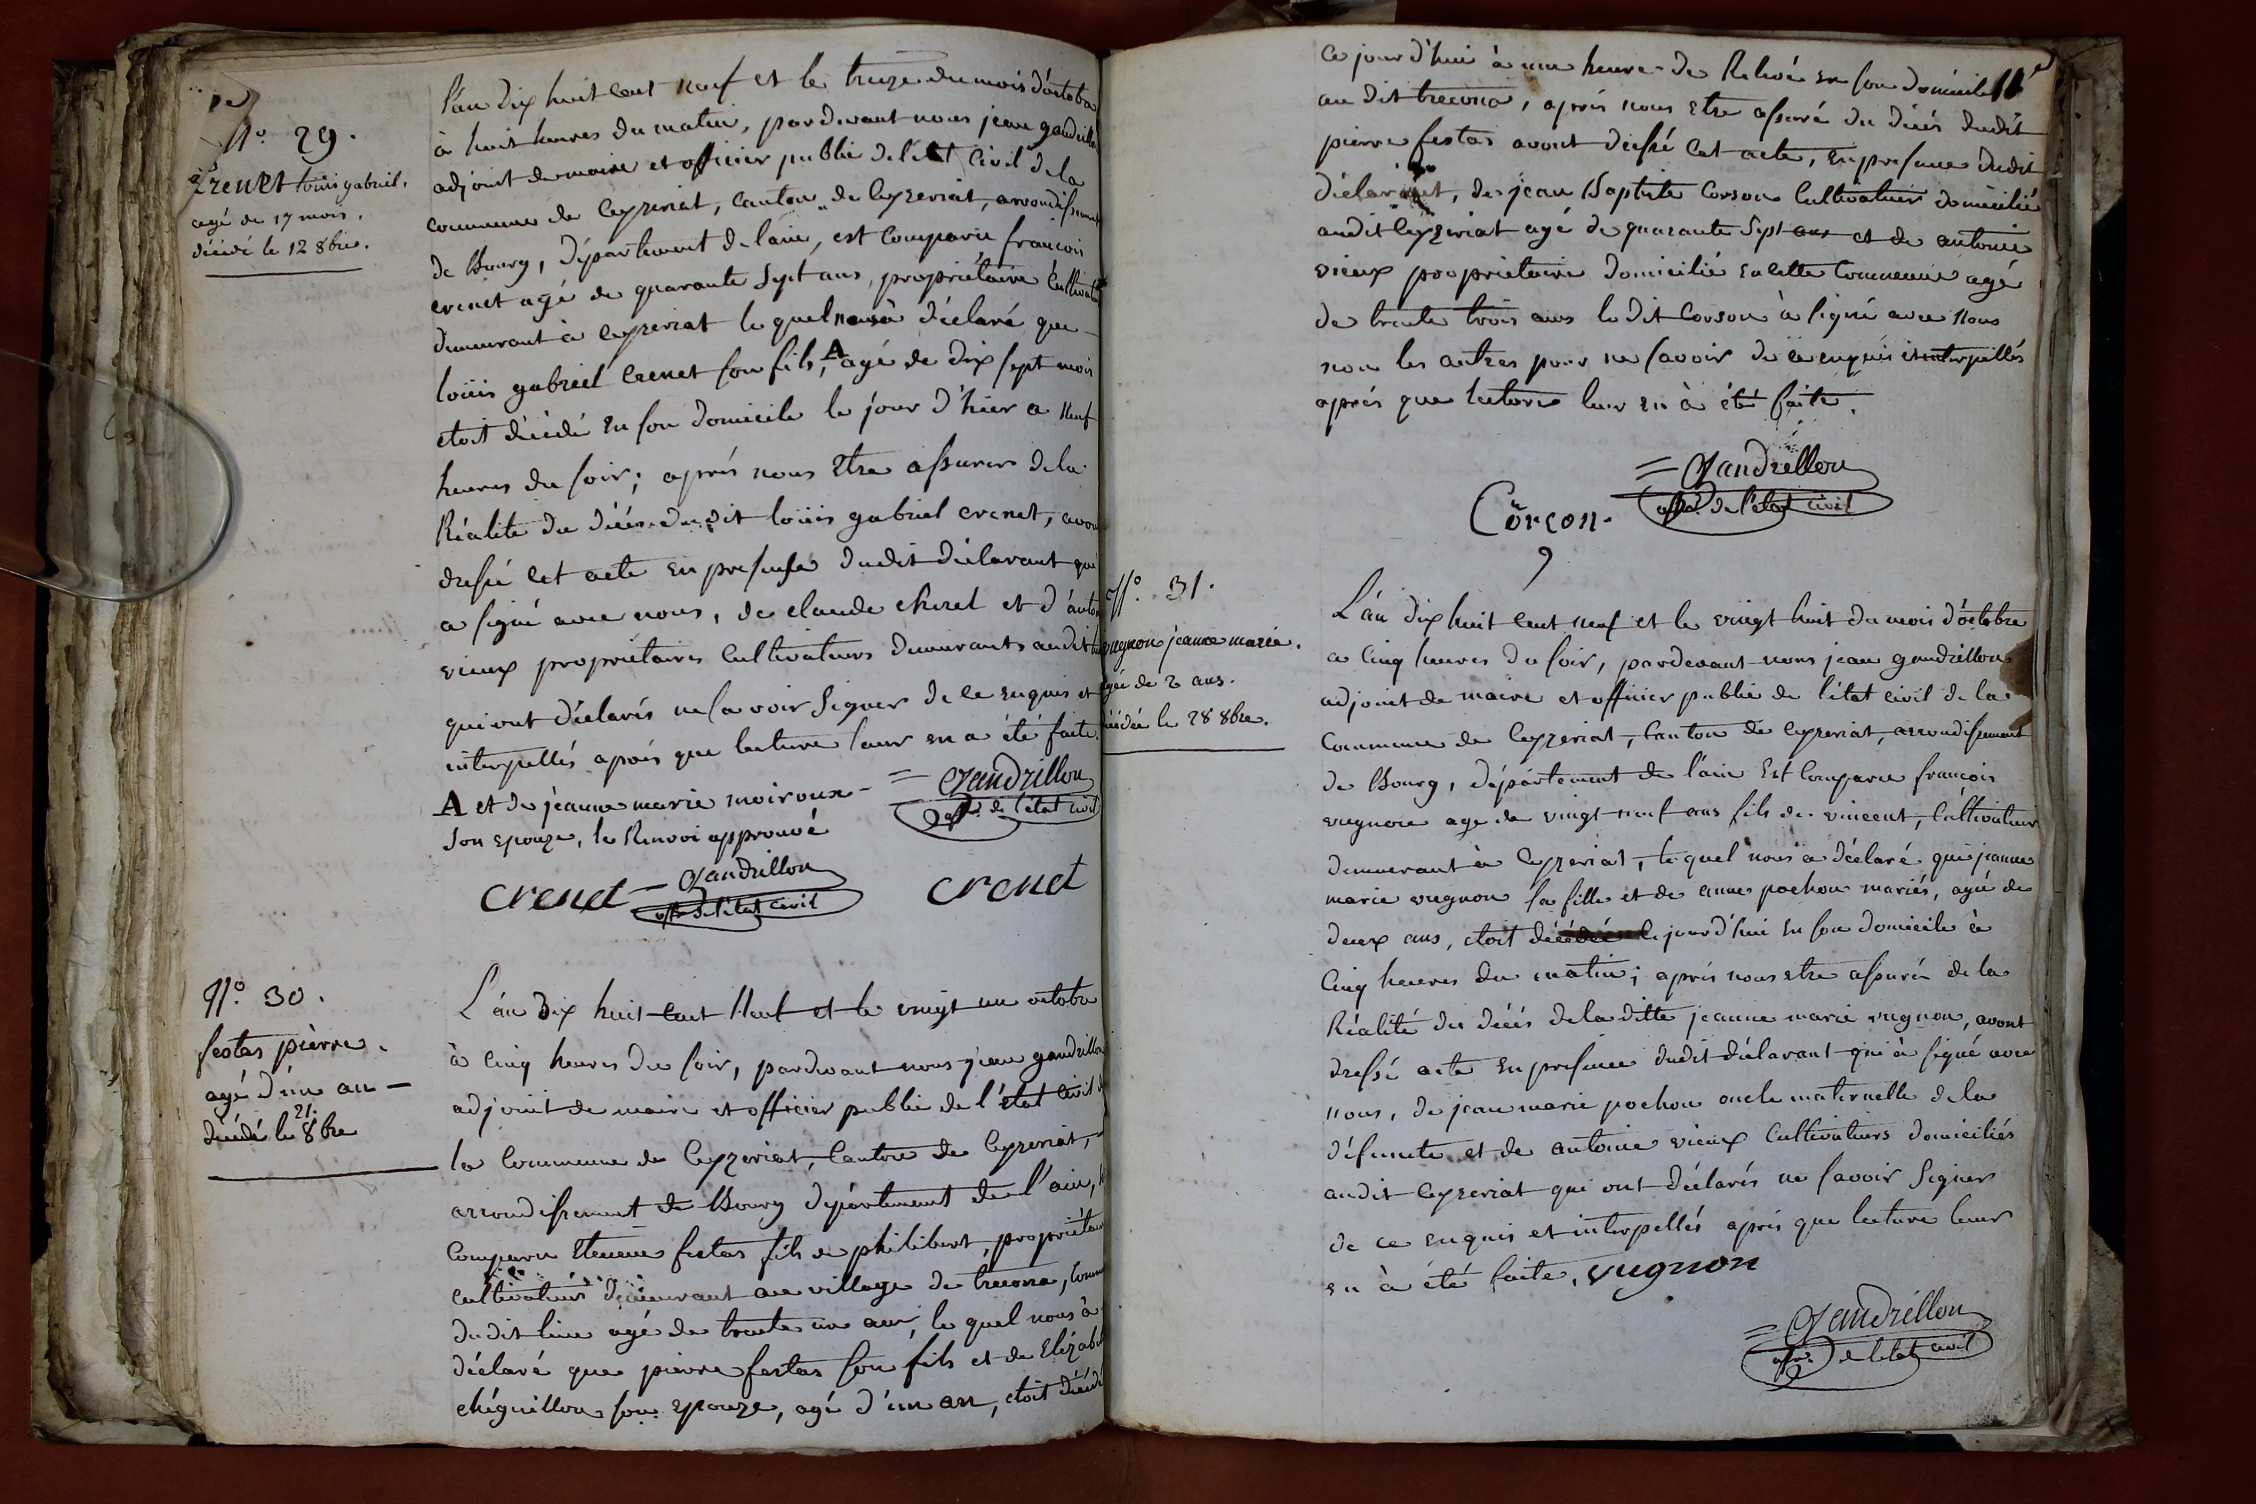 N.º 29.
Crenet loüis gabriel.
agé de 17 mois.
décédé le 12 8bre.
l'an dix huit cent neuf et le treize du mois d'octobre
à huit heures du matin, pardevant nous jean gandrillon
adjoint de maire et officier public de l'état civil de la
commune de Ceyzeriat, canton de Ceyzeriat, arrondissement
de Bourg, département de l'ain, est comparu francois
crenet agé de quarante sept ans, propriétaire Cultivateur
demeurant à ceyzeriat le quel nous à déclaré que
loüis gabriel Crenet son fils, A agé de dix sept mois
etoit décédé en son domicile le jour d'hier a neuf
heures du soir; aprés nous etre assurer de la
Réalité du décés dudit loüis gabriel crenet, avons
dressé cet acte en presense dudit déclarant qui
a signé avec nous, de claude chezel et d'antoine
vieux propriétaires Cultivateurs demeurants audit
qui ont déclarés ne savoir signer de ce enquis et
interpellés aprés que lecture leur en a été faite.
A et de jeanne marie moiroux
son epouze, le Renvoi approuvé
= Gandrillon
offr. de l'état civil
crenet = Gandrillon
offr de l'état civil
crenet
N.º 30.
festas pièrre.
agé d'un an
21.
décédé le 8bre
L'an dix huit cent Neuf et le vingt un octobre
à cinq heures du soir, pardevant nous jean gandrillon
adjoint de maire et officier public de l'état civil de
la Commune de Ceyzeriat, Canton de Ceyzeriat,
arrondissement de Bourg département de l'ain,
Comparu Etienne festas fils de philibert, propriétaire
cultivateur demeurant au village de treconna,
dudit lieu agé de trente un an, le quel nous à
déclaré que pierre festas son fils et de Elizabeth
chéguillon son epouze, agé d'un an, etoit décédé
11e
ce jour d'hui à une heure de Relevé en son domicile
au dit trecona, aprés nous etre assuré du décés dudit
pierre festas avont dressé cet acte, en presence dudit
déclarant, de jean Baptiste Corson Cultivateur domicilié
audit Ceyzeriat agé de quarante sept ans et de antoine
vieux propriétaire domicilié en cette Commune agé
de trente trois ans le dit Corson à signé avec nous
non les autres pour ne savoir de ce enquis et interpellés
aprés que lecture leur en à été faite.
= Gandrillon
offr. de l'état civil
Côrcon.
N.º 31.
vugnon jeanne marie.
agée de 2 ans.
décédée le 28 8bre.
L'an dix huit cent neuf et le vingt huit du mois d'octobre
a Cinq heures du soir, pardevant nous jean gandrillon
adjoint de maire et officier public de l'état civil de la
Commune de Ceyzeriat, Canton de Ceyzeriat, arrondissement
de Bourg, département de l'ain Est Comparu françois
vugnon age de vingt neuf ans fils de vincent, Cultivateur
demeurant à Ceyzeriat, le quel nous a déclaré que jeanne
marie vugnon sa fille et de anne pochon mariés, agée de
deux ans, etoit décédée ce jourd'hui en son domicile à
Cinq heures du matin; aprés nous etre assuré de la
Réalité du décés de la ditte jeanne marie vugnon, avont
dressé acte en presence dudit déclarant qui à signé avec
nous, de jean marie pochon oncle maternelle de la
défuncte et de antoine vieux Cultivateurs domiciliés
audit Ceyzeriat qui ont déclarés ne savoir signer
de ce enquis et interpellés aprés que lecture leur
en à été faite. vugnon
= Gandrillon
offr. de l'etat civil